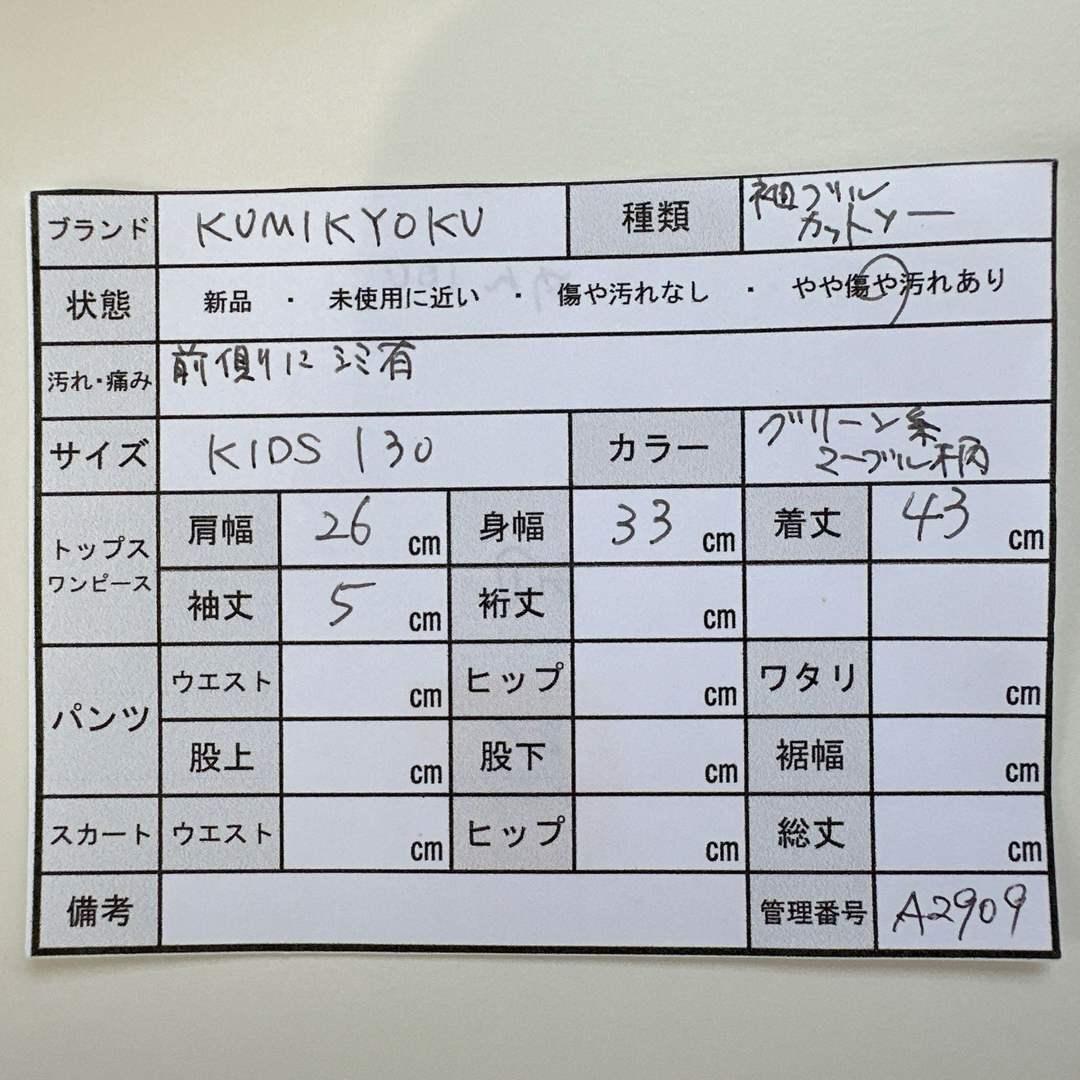 ブランド KUMIKYOKU 種類 袖フリル
カットソー
状態 新品 ・ 未使用に近い ・ 傷や汚れなし ・ やや傷や汚れあり
汚れ・痛み 前側りにシミ有
サイズ KIDS 130 カラー グリーン系
マーブル柄
トップス
ワンピース
肩幅 26 cm 身幅 33 cm 着丈 43 cm
袖丈 5 cm 裄丈 cm
パンツ
ウエスト cm ヒップ cm ワタリ cm
股上 cm 股下 cm 裾幅 cm
スカート ウエスト cm ヒップ cm 総丈 cm
備考 管理番号 A2909